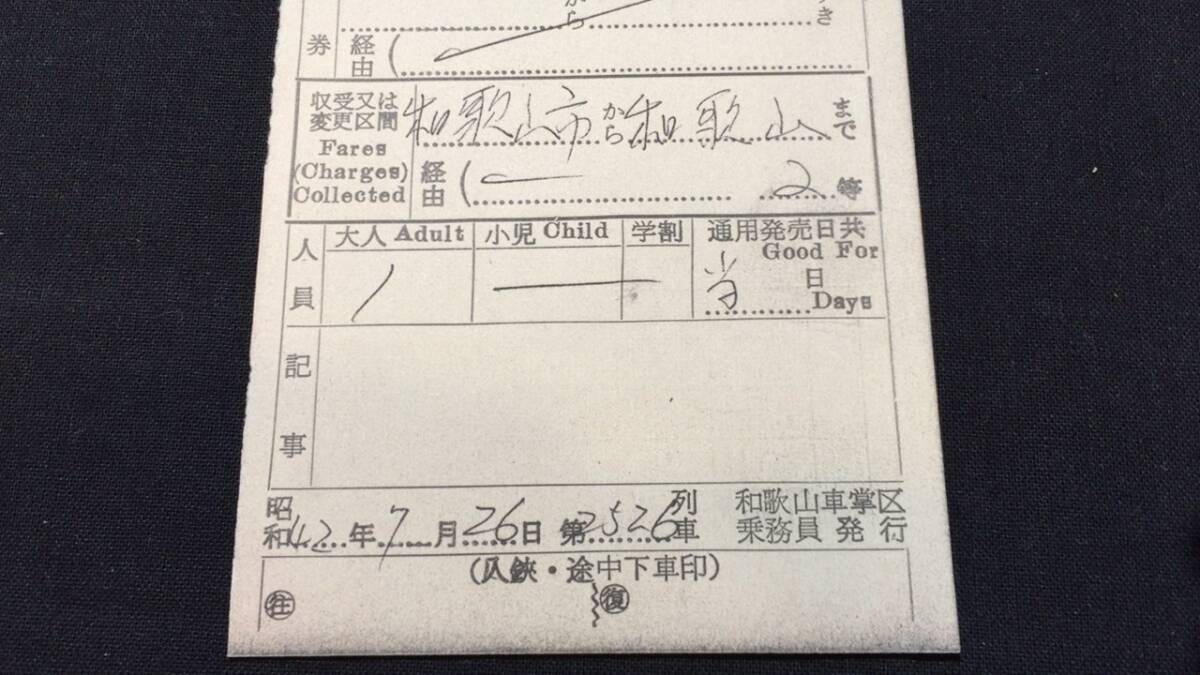 から
き
券 経由 (
収受又は
変更区間
Fares
(Charges)
Collected
和歌山市から和歌山まで
経由 ( 2等
人員
大人 Adult 小児 Child 学割 通用発売日共
Good For
1 当日
Days
記事
昭和42年7月26日 第2526列車
和歌山車掌区
乗務員発行
(入鋏・途中下車印)
往 復